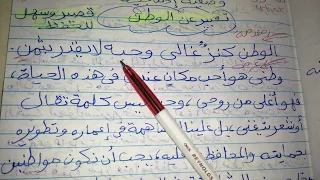 تعبير عن الوطن
قصير وسهل
للحفظ
الوطن كنز غالي وحبه لا يقدر بثمن.
وطني هو أحب مكان عندي في هذه الحياة،
فهو أغلى من روحي، وحبه ليس كلمة تقال
أو شعر يتغنى، بل علينا المساهمة في إعماره وتطويره
لحمايته والمحافظة عليه، يجب أن نكون مواطنين